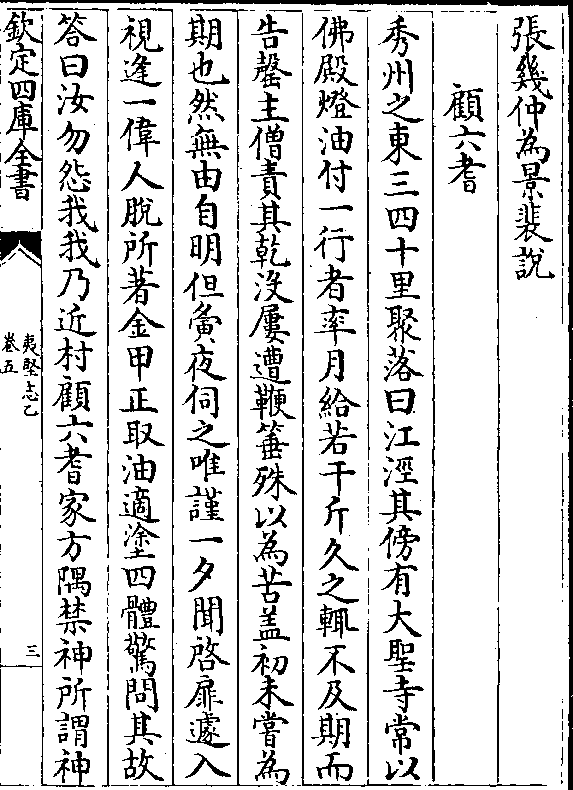 張幾仲為景裴說
顧六耆
秀州之東三四十里聚落曰江涇其傍有大聖寺常以
佛殿燈油付一行者率月給若干斤久之輒不及期而
告罄主僧責其乾沒屢遭鞭箠殊以為苦盖初未嘗為
期也然無由自明但夤夜伺之唯謹一夕聞啓扉遽入
視逢一偉人脫所著金甲正取油適塗四體驚問其故
答曰汝勿怨我我乃近村顧六耆家方隅禁神所謂神
欽定四庫全書
夷堅志乙
卷五
三